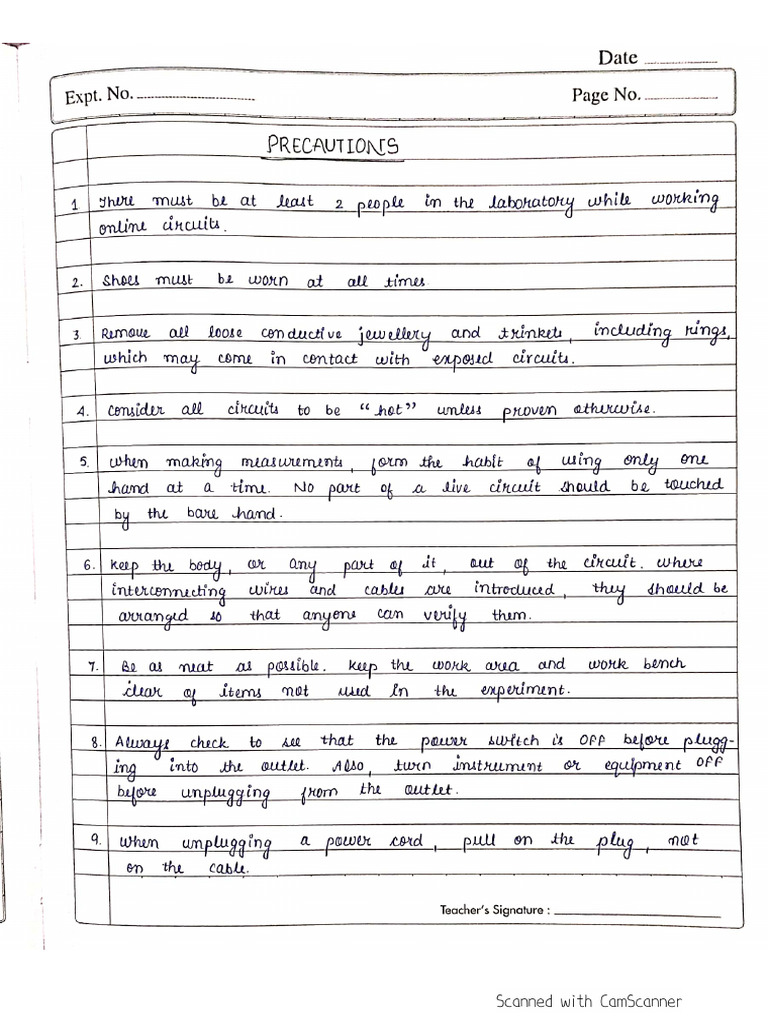 Date
Expt. No.
Page No.
PRECAUTIONS
1 There must be at least 2 people in the laboratory while working
online circuits.
2. Shoes must be worn at all times
3. Remove all loose conductive jewellery and trinkets, including rings,
which may come in contact with exposed circuits.
4. Consider all circuits to be "hot" unless proven otherwise.
5. When making measurements, form the habit of using only one
hand at a time. No part of a live circuit should be touched
by the bare hand.
6. Keep the body, or any part of it, out of the circuit. Where
interconnecting wires and cables are introduced, they should be
arranged so that anyone can verify them.
7. Be as neat as possible. Keep the work area and work bench
clear of items not used in the experiment.
8. Always check to see that the power switch is OFF before plugg-
ing into the outlet. Also, turn instrument or equipment OFF
before unplugging from the outlet.
9. When unplugging a power cord, pull on the plug, not
on the cable.
Teacher's Signature :
Scanned with CamScanner